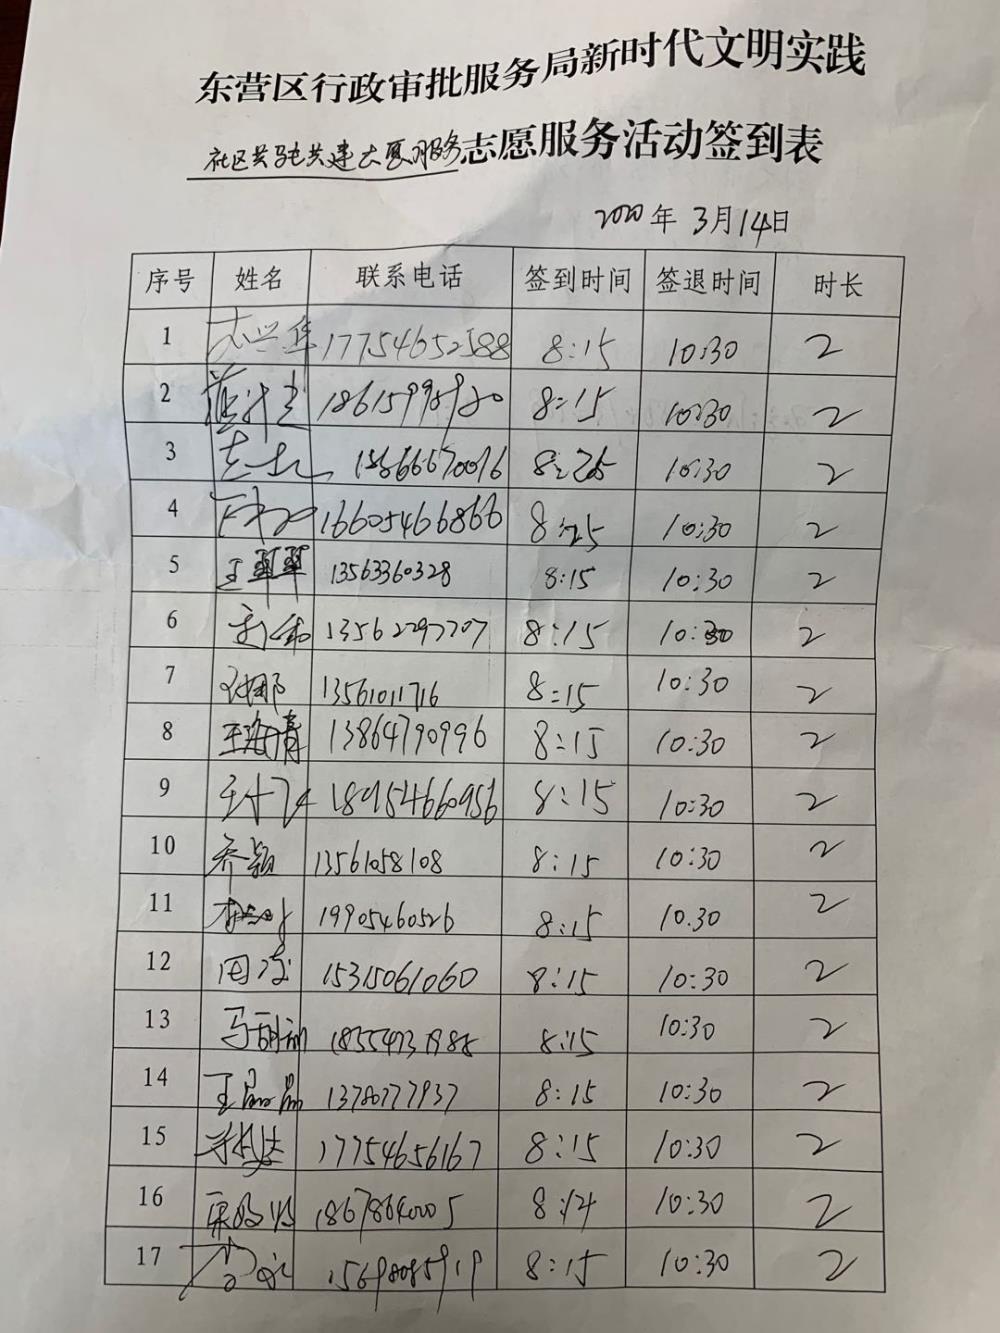 东营区行政审批服务局新时代文明实践
社区共驻共建大厦服务志愿服务活动签到表
年 3月14日
序号 姓名 联系电话 签到时间 签退时间 时长
1 17754652588 8:15 10:30 2
2 8:15 10:30 2
3 8:25 10:30 2
4 16605466866 8:25 10:30 2
5 王翠翠 13563360328 8:15 10:30 2
6 13562297707 8:15 10:30 2
7 13561011716 8:15 10:30 2
8 王海青 13864790996 8:15 10:30 2
9 18954660956 8:15 10:30 2
10 乔颖 13561058108 8:15 10:30 2
11 19905460526 8:15 10.30 2
12 15315061060 8:15 10:30 2
13 8:15 10:30 2
14 王晶晶 13780777937 8:15 10:30 2
15 17754656167 8:15 10:30 2
16 8:14 10:30 2
17 15698085919 8:15 10:30 2